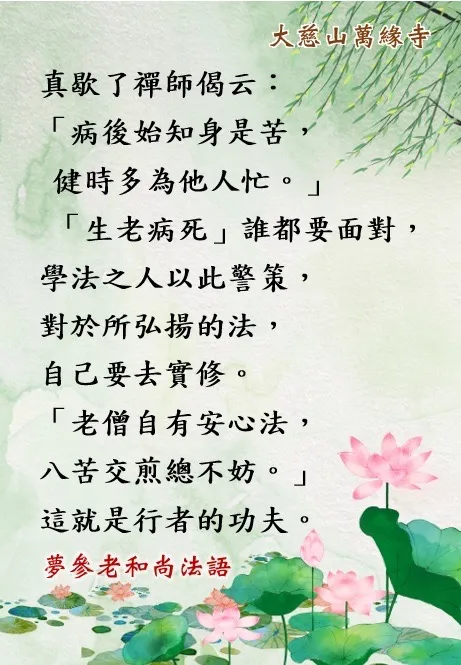 大慈山萬緣寺
真歇了禪師偈云：
「病後始知身是苦，
健時多為他人忙。」
「生老病死」誰都要面對，
學法之人以此警策，
對於所弘揚的法，
自己要去實修。
「老僧自有安心法，
八苦交煎總不妨。」
這就是行者的功夫。
夢參老和尚法語